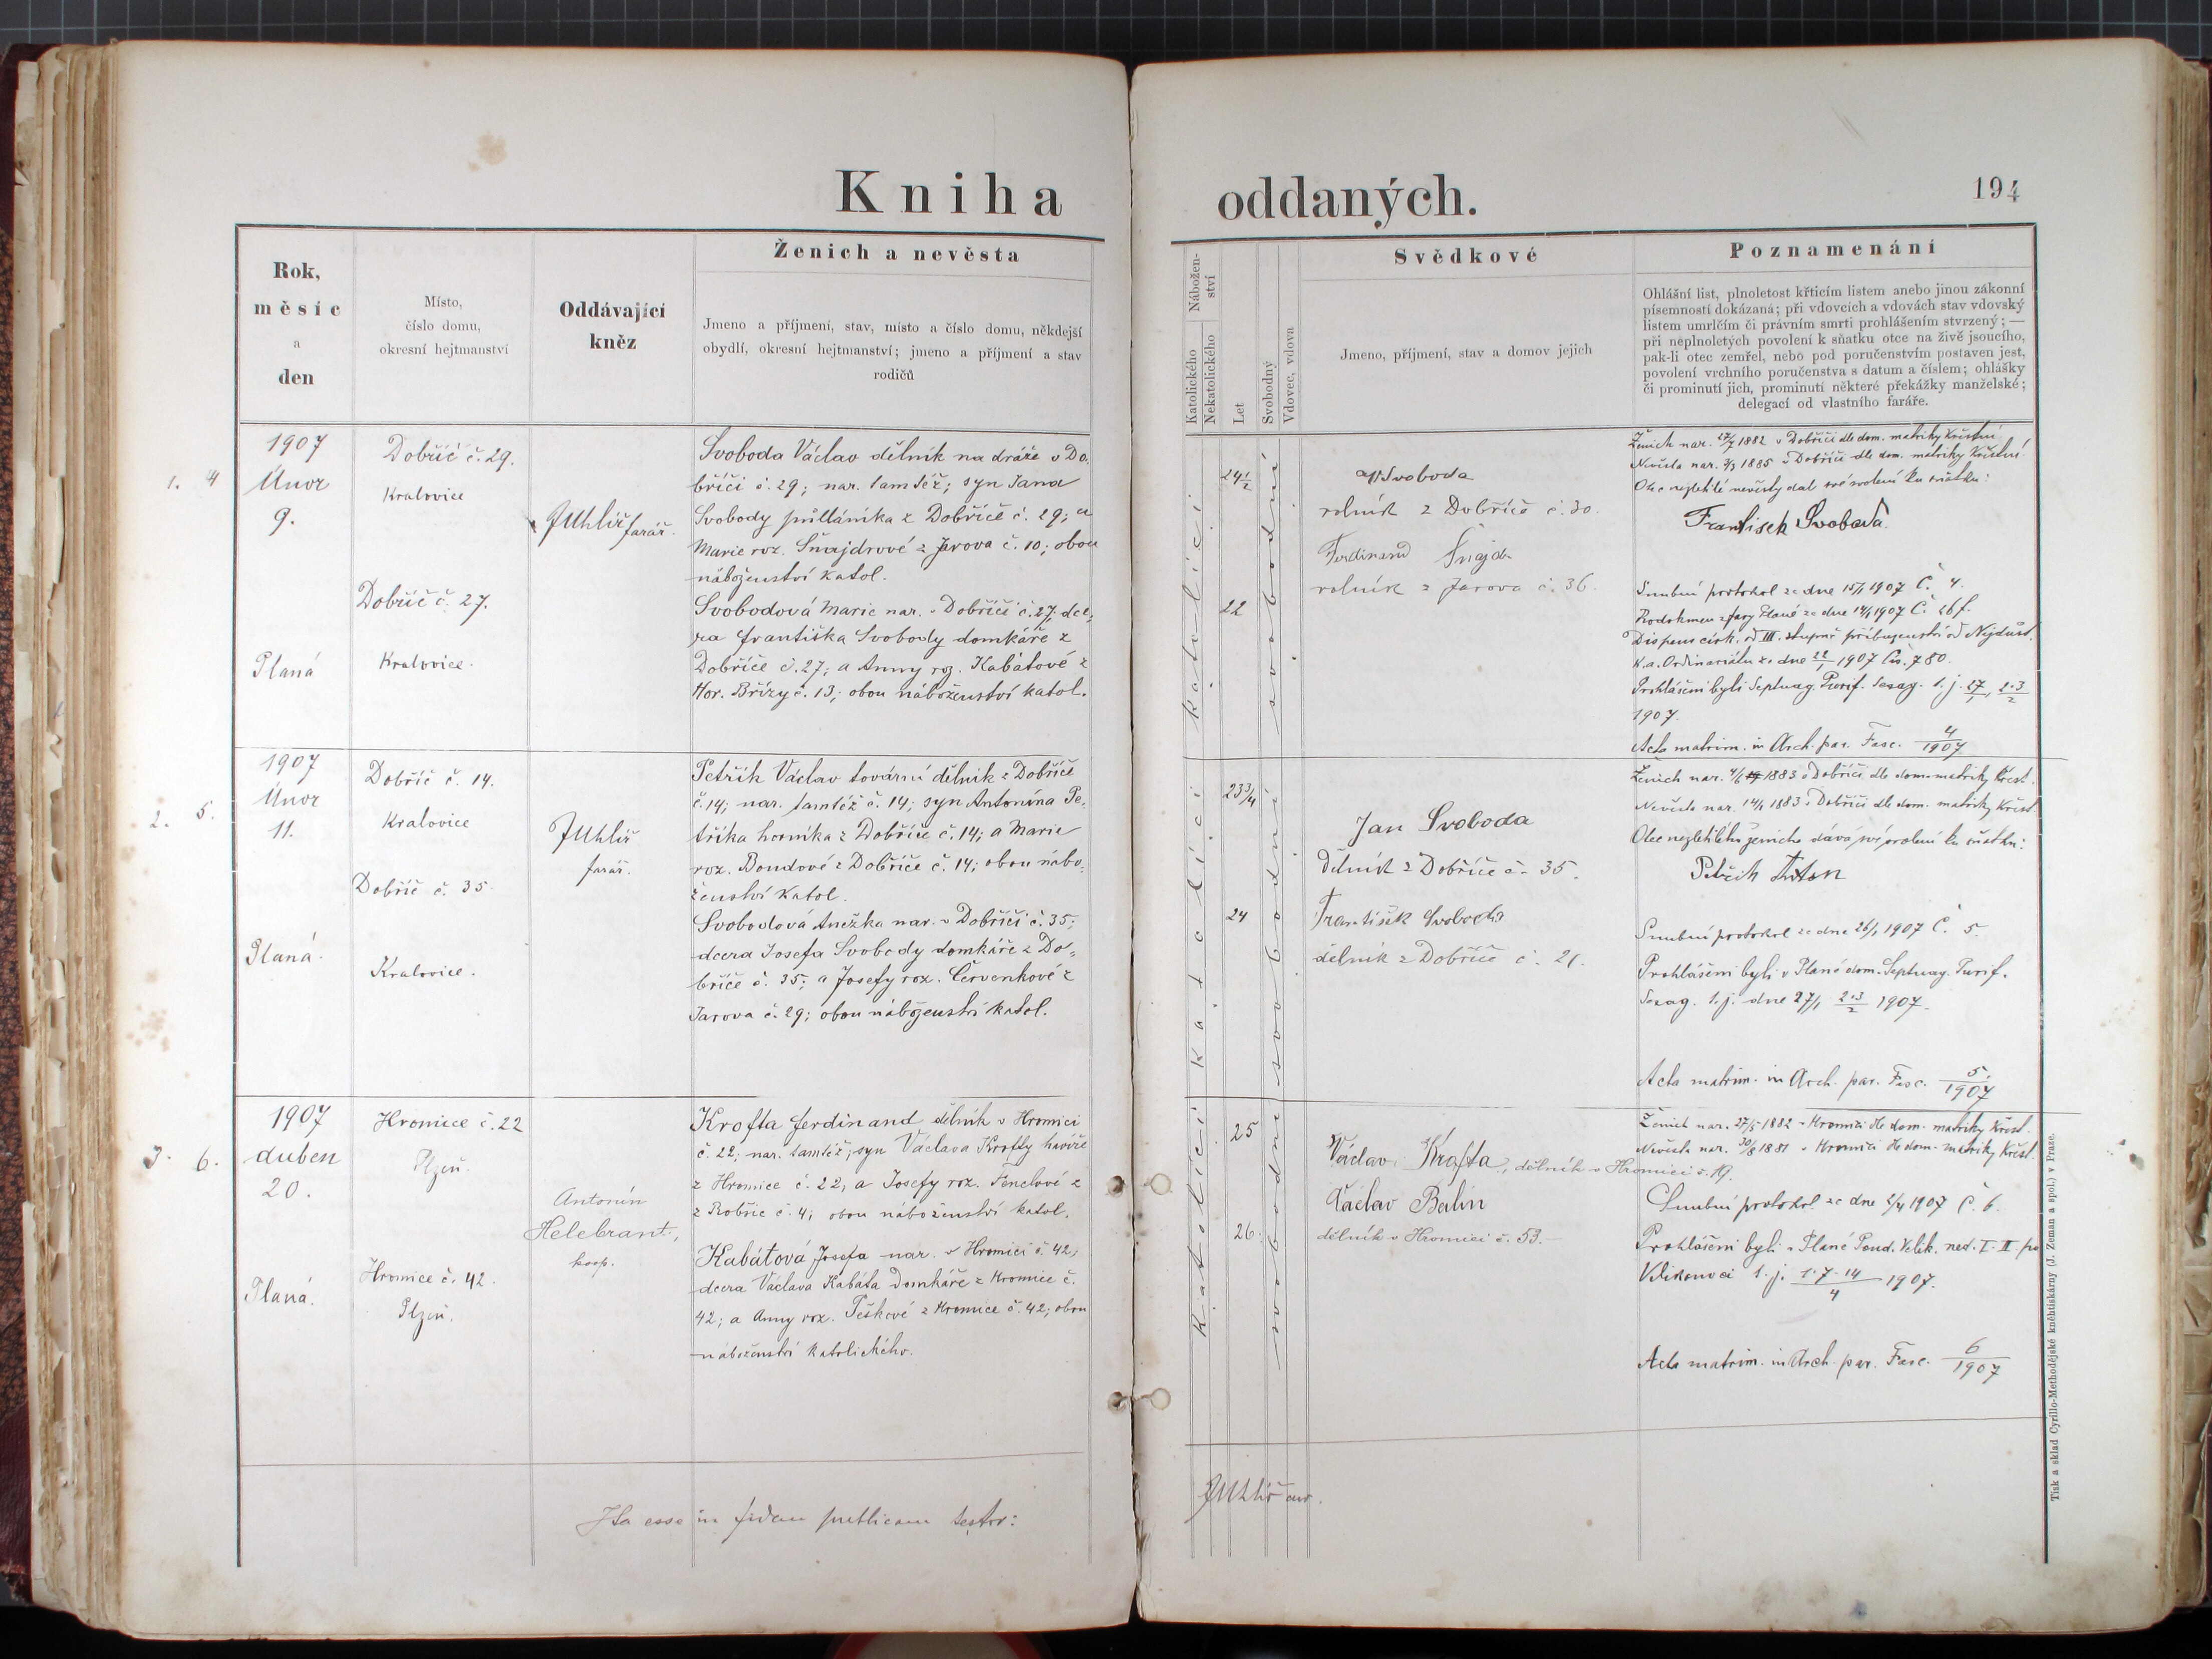 Kniha oddaných.
194
Rok,
měsíc
a
den
Místo,
číslo domu,
okresní hejtmanství
Oddávající
kněz
Ženich a nevěsta
Jmeno a příjmení, stav, místo a číslo domu, někdejší
obydlí, okresní hejtmanství; jmeno a příjmení a stav
rodičů
Nábožen-
ství
Katolického
Nekatolického
Let
Svobodný
Vdovec, vdova
Svědkové
Jmeno, příjmení, stav a domov jejich
Poznamenání
Ohlášní list, plnoletost křticím listem anebo jinou zákonní
písemností dokázaná; při vdovcích a vdovách stav vdovský
listem umrlčím či právním smrti prohlášením stvrzený; —
při neplnoletých povolení k sňatku otce na živě jsoucího,
pak-li otec zemřel, nebo pod poručenstvím postaven jest,
povolení vrchního poručenstva s datum a číslem; ohlášky
či prominutí jich, prominutí některé překážky manželské;
delegací od vlastního faráře.
1. 4
1907
Únor
9.
Planá
Dobříč č. 29.
Kralovice
Dobříč č. 27.
Kralovice.
JUhlíř farář.
Svoboda Václav dělník na dráze v Do-
bříči č. 29; nar. tamtéž; syn Jana
Svobody půlláníka z Dobříče č. 29; a
Marie roz. Šnajdrové z Jarova č. 10; obou
náboženství katol.
Svobodová Marie nar. v Dobříči č. 27; dce-
ra Františka Svobody domkáře z
Dobříče č. 27; a Anny roz. Kabátové z
Hor. Břízy č. 13; obou náboženství katol.
katolíci
24 1/2
22
svobodní
Svoboda
rolník z Dobříče č. 30.
Ferdinand Šnajdr
rolník z Jarova č. 36.
Ženich nar. 27/7 1882 v Dobříči dle dom. matriky křestní
Nevěsta nar. 3/3 1885 v Dobříči dle dom. matriky křestní.
Otec nezletilé nevěsty dal své svolení ku sňatku:
František Svoboda.
Snubní protokol ze dne 15/1 1907 Č. 4.
Rodokmen z fary Plané ze dne 14/1 1907 Č. 26 f.
Dispens círk. od III. stupně příbuzenství od Nejdůst.
K. a. Ordinariátu ze dne 22/1 1907 Čís. 780.
Prohlášeni byli Septuag. Purif. Sexag. t. j. 27/1, 2.3/2
1907.
Acta matrim. in Arch. par. Fasc. 4/1907
2. 5.
1907
Únor
11.
Planá.
Dobříč č. 14.
Kralovice
Dobříč č. 35
Kralovice.
JUhlíř
farář.
Petřík Václav tovární dělník z Dobříče
č. 14; nar. tamtéž č. 14; syn Antonína Pe-
tříka horníka z Dobříče č. 14; a Marie
roz. Boudové z Dobříče č. 14; obou nábo-
ženství katol.
Svobodová Anežka nar. v Dobříči č. 35;
dcera Josefa Svobody domkáře z Do-
bříče č. 35; a Josefy roz. Červenkové z
Jarova č. 29; obou náboženství katol.
katolíci
23 3/4
24
svobodní
Jan Svoboda
dělník z Dobříče č. 35.
František Svoboda
dělník z Dobříče č. 21.
Ženich nar. 4/6 1883 v Dobříči dle dom. matriky křest.
Nevěsta nar. 14/1 1883 v Dobříči dle dom. matriky křest.
Otec nezletilého ženicha dává své svolení ku sňatku:
Petřík Anton
Snubní protokol ze dne 26/1 1907 Č. 5.
Prohlášeni byli v Plané dom. Septuag. Purif.
Sexag. t. j. dne 27/1 2.3/2 1907.
Acta matrim. in Arch. par. Fasc. 5/1907
3. 6.
1907
duben
20.
Planá.
Hromice č. 22
Plzeň.
Hromice č. 42.
Plzeň.
Antonín
Helebrant,
koop.
Krofta Ferdinand dělník v Hromici
č. 22; nar. tamtéž; syn Václava Krofty havíře
z Hromice č. 22, a Josefy roz. Fenclové z
z Robčic č. 4; obou náboženství katol.
Kabátová Josefa nar. v Hromici č. 42,
dcera Václava Kabáta domkáře z Hromice č.
42; a Anny roz. Peškové z Hromice č. 42; obou
náboženství katolického.
katolíci
25
26.
svobodní
Václav Krofta, dělník v Hromici č. 19.
Václav Balín
dělník v Hromici č. 53.
Ženich nar. 27/5 1882 v Hromici dle dom. matriky křest.
Nevěsta nar. 30/8 1881 v Hromici dle dom. matriky křest.
Snubní protokol ze dne 1907 Č. 6.
Prohlášeni byli v Plané Pond. Velik. ned. I. II. po
Velikonoci t. j. 1.7.14/4 1907.
Acta matrim. in Arch. par. Fasc. 6/1907
Ita esse in fidem publicam testor:
JUhlíř
Tisk a sklad Cyrillo-Methodějské knihtiskárny (J. Zeman a spol.) v Praze.